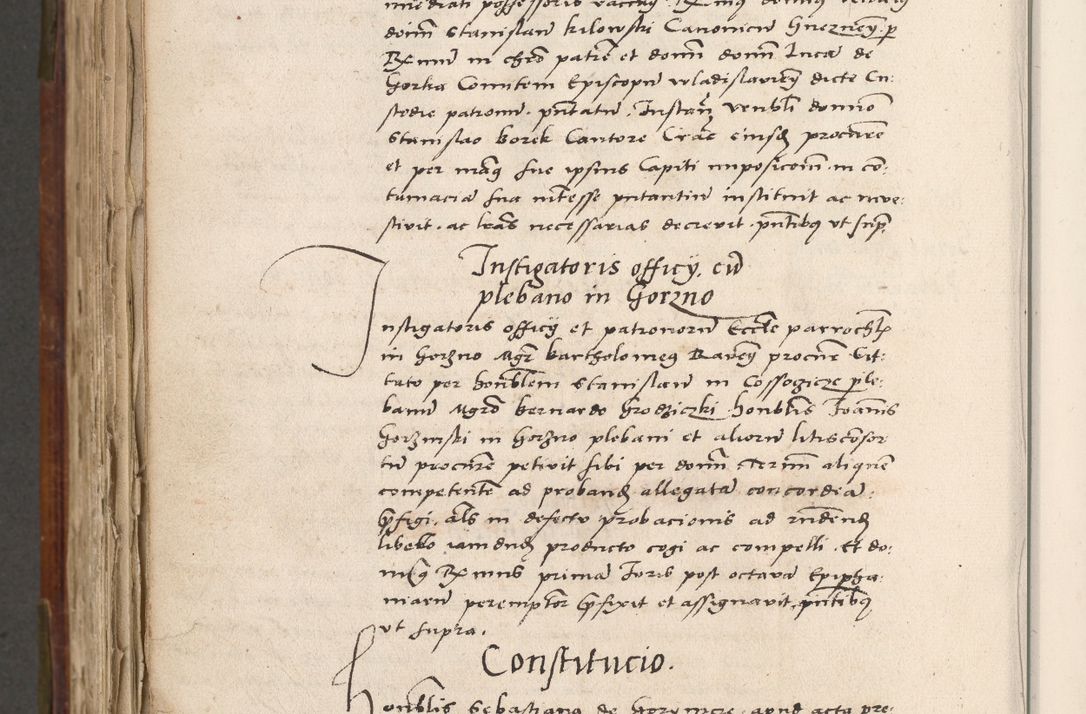 domini Stanislaum Kilowski Canonicum Gneznens. p
Rx mum in chro patrem et domi domi Luca de
Gorka Comitem Episcopum Wladislavien dicte Cu:
stodie patronum . pntatum . Instan venbli domno
Stanislao Borek Cantore Crac eiusq procure
et per man sue ipsius Capiti imposicoem in co:
tumacia sua intesse pntantium instituit ac inve:
stivit . ac lras necessarias decrevit . pntibus ut supra
Instigatoris officij . cum
plebano in Gorzno
Instigatoris officij et patronorum Eccle parrochlis
in Gorzno Mgr Bartholomeus Raven procure Cit:
tato per honblem Stanislaum in Cossogicze ple:
banum Mgro Bernardo Grodziczki . honblis Ioannis
Gorzinski in Gorzno plebani et aliorum litis consor
tum procure petivit sibi per domi Termi aliquem
competente ad proband allegata concordea .
pfigi . als in defectu probacionis ad rndend
libello iamdud producto cogi ac compelli . Et do:
mi Rx mus prima Iuris post octava Epipha:
niarum peremptor pfixit et assignavit pntibus
ut supra .
Constitucio .
Honblis Sebastianus de apud acta pre: